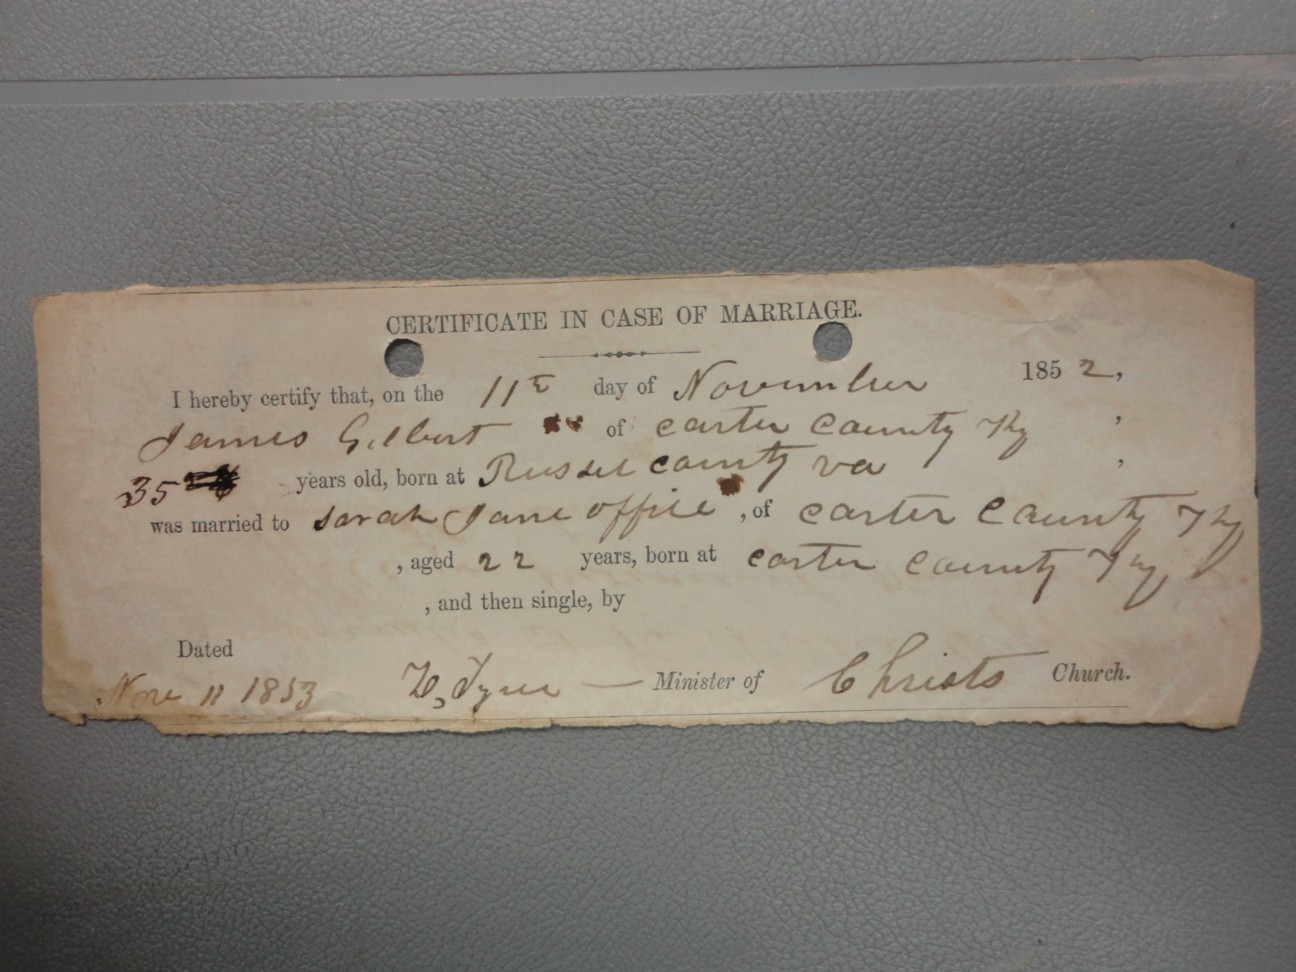 CERTIFICATE IN CASE OF MARRIAGE.
I hereby certify that, on the 11th day of November 1852,
James Gilbert of carter county Ky ,
35 years old, born at Russel county va ,
was married to Sarah Jane offile , of carter county Ky
, aged 22 years, born at carter county Ky
, and then single, by
Dated
Nov 11 1853 Minister of Christs Church.